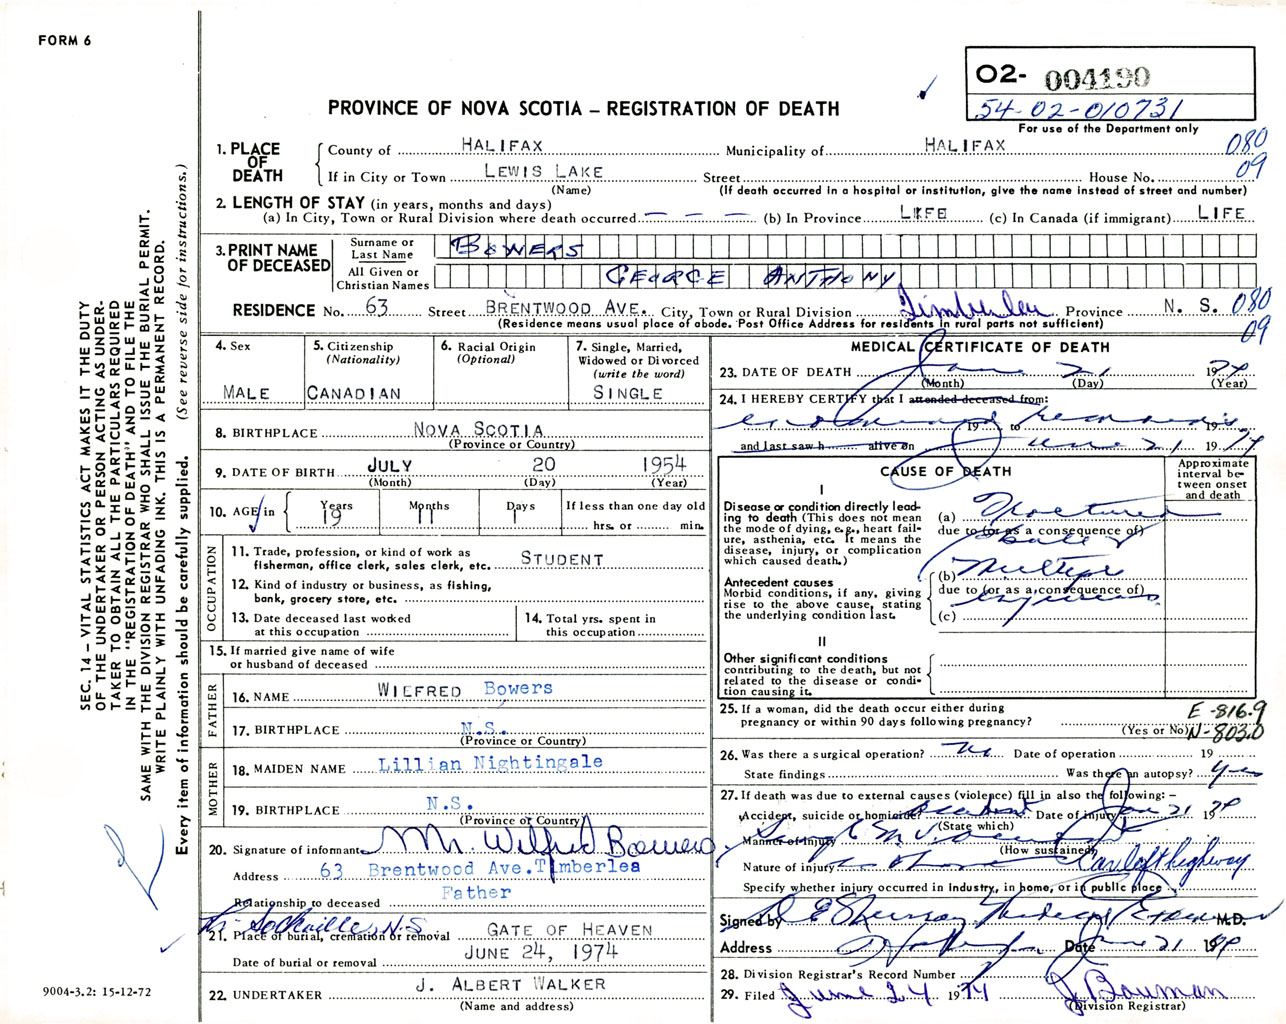 FORM 6
O2- 004190
54-02-010731
For use of the Department only
PROVINCE OF NOVA SCOTIA – REGISTRATION OF DEATH
SEC. 14 – VITAL STATISTICS ACT MAKES IT THE DUTY
OF THE UNDERTAKER OR PERSON ACTING AS UNDER-
TAKER TO OBTAIN ALL THE PARTICULARS REQUIRED
IN THE "REGISTRATION OF DEATH" AND TO FILE THE
SAME WITH THE DIVISION REGISTRAR WHO SHALL ISSUE THE BURIAL PERMIT.
WRITE PLAINLY WITH UNFADING INK. THIS IS A PERMANENT RECORD.
Every item of information should be carefully supplied. (See reverse side for instructions.)
1. PLACE OF DEATH
County of HALIFAX Municipality of HALIFAX 080
If in City or Town LEWIS LAKE Street House No. 09
(Name) (If death occurred in a hospital or institution, give the name instead of street and number)
2. LENGTH OF STAY (in years, months and days)
(a) In City, Town or Rural Division where death occurred — — — (b) In Province LIFE (c) In Canada (if immigrant) LIFE
3. PRINT NAME OF DECEASED
Surname or Last Name BOWERS
All Given or Christian Names GEORGE ANTHONY
RESIDENCE No. 63 Street BRENTWOOD AVE. City, Town or Rural Division Timberlea Province N. S. 080
(Residence means usual place of abode. Post Office Address for residents in rural parts not sufficient) 09
4. Sex
MALE
5. Citizenship
(Nationality)
CANADIAN
6. Racial Origin
(Optional)
7. Single, Married,
Widowed or Divorced
(write the word)
SINGLE
8. BIRTHPLACE NOVA SCOTIA
(Province or Country)
9. DATE OF BIRTH JULY 20 1954
(Month) (Day) (Year)
10. AGE in
Years Months Days If less than one day old
19 11 1 hrs. or min.
OCCUPATION
11. Trade, profession, or kind of work as
fisherman, office clerk, sales clerk, etc. STUDENT
12. Kind of industry or business, as fishing,
bank, grocery store, etc.
13. Date deceased last worked
at this occupation
14. Total yrs. spent in
this occupation
15. If married give name of wife
or husband of deceased
FATHER
16. NAME WILFRED Bowers
17. BIRTHPLACE N.S.
(Province or Country)
MOTHER
18. MAIDEN NAME Lillian Nightingale
19. BIRTHPLACE N.S.
(Province or Country)
20. Signature of informant Mr. Wilfred Bowers
Address 63 Brentwood Ave. Timberlea
Father
Relationship to deceased
Sackville, N.S
21. Place of burial, cremation or removal GATE OF HEAVEN
Date of burial or removal JUNE 24, 1974
22. UNDERTAKER J. ALBERT WALKER
(Name and address)
MEDICAL CERTIFICATE OF DEATH
23. DATE OF DEATH June 21 1974
(Month) (Day) (Year)
24. I HEREBY CERTIFY that I attended deceased from:
examined remains
19 to 19
and last saw h alive on June 21 1974
CAUSE OF DEATH
Approximate
interval be-
tween onset
and death
I
Disease or condition directly lead-
ing to death (This does not mean
the mode of dying, e.g., heart fail-
ure, asthenia, etc. It means the
disease, injury, or complication
which caused death.)
(a) Fractured
due to (or as a consequence of)
Skull &
Antecedent causes
Morbid conditions, if any, giving
rise to the above cause, stating
the underlying condition last.
(b) Multiple
due to (or as a consequence of)
injuries
(c)
II
Other significant conditions
contributing to the death, but not
related to the disease or condi-
tion causing it.
25. If a woman, did the death occur either during
pregnancy or within 90 days following pregnancy?
(Yes or No)
E-816.9
N-803.0
26. Was there a surgical operation? no Date of operation 19
State findings Was there an autopsy? yes
27. If death was due to external causes (violence) fill in also the following: –
Accident, suicide or homicide? accident Date of injury June 21 1974
(State which)
Manner of injury
(How sustained)
Nature of injury as above Car left highway
Specify whether injury occurred in Industry, in home, or in public place
Signed by Medical Examiner M.D.
Address Halifax Date June 21 1974
28. Division Registrar's Record Number
29. Filed June 24 1974 J Bauman
(Division Registrar)
9004-3.2: 15-12-72